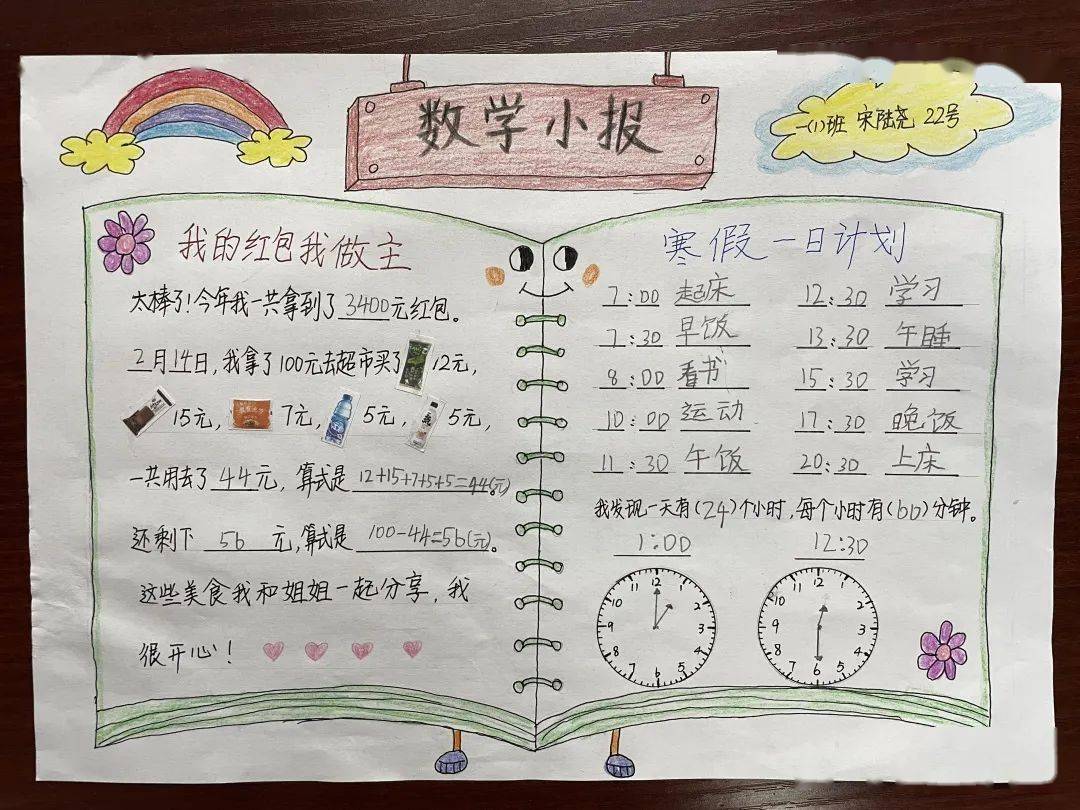 数学小报
一(1)班 宋陆尧 22号
我的红包我做主
太棒了!今年我一共拿到了3400元红包。
2月14日,我拿了100元去超市买了 12元,
15元, 7元, 5元, 5元,
一共用去了44元,算式是12+15+7+5+5=44(元)
还剩下 56 元,算式是 100-44=56(元)。
这些美食我和姐姐一起分享,我
很开心!
寒假一日计划
7:00 起床 12:30 学习
7:30 早饭 13:30 午睡
8:00 看书 15:30 学习
10:00 运动 17:30 晚饭
11:30 午饭 20:30 上床
我发现一天有(24)个小时,每个小时有(60)分钟。
1:00 12:30
12 1 2 3 4 5 6 7 8 9 10 11
12 1 2 3 4 5 6 7 8 9 10 11